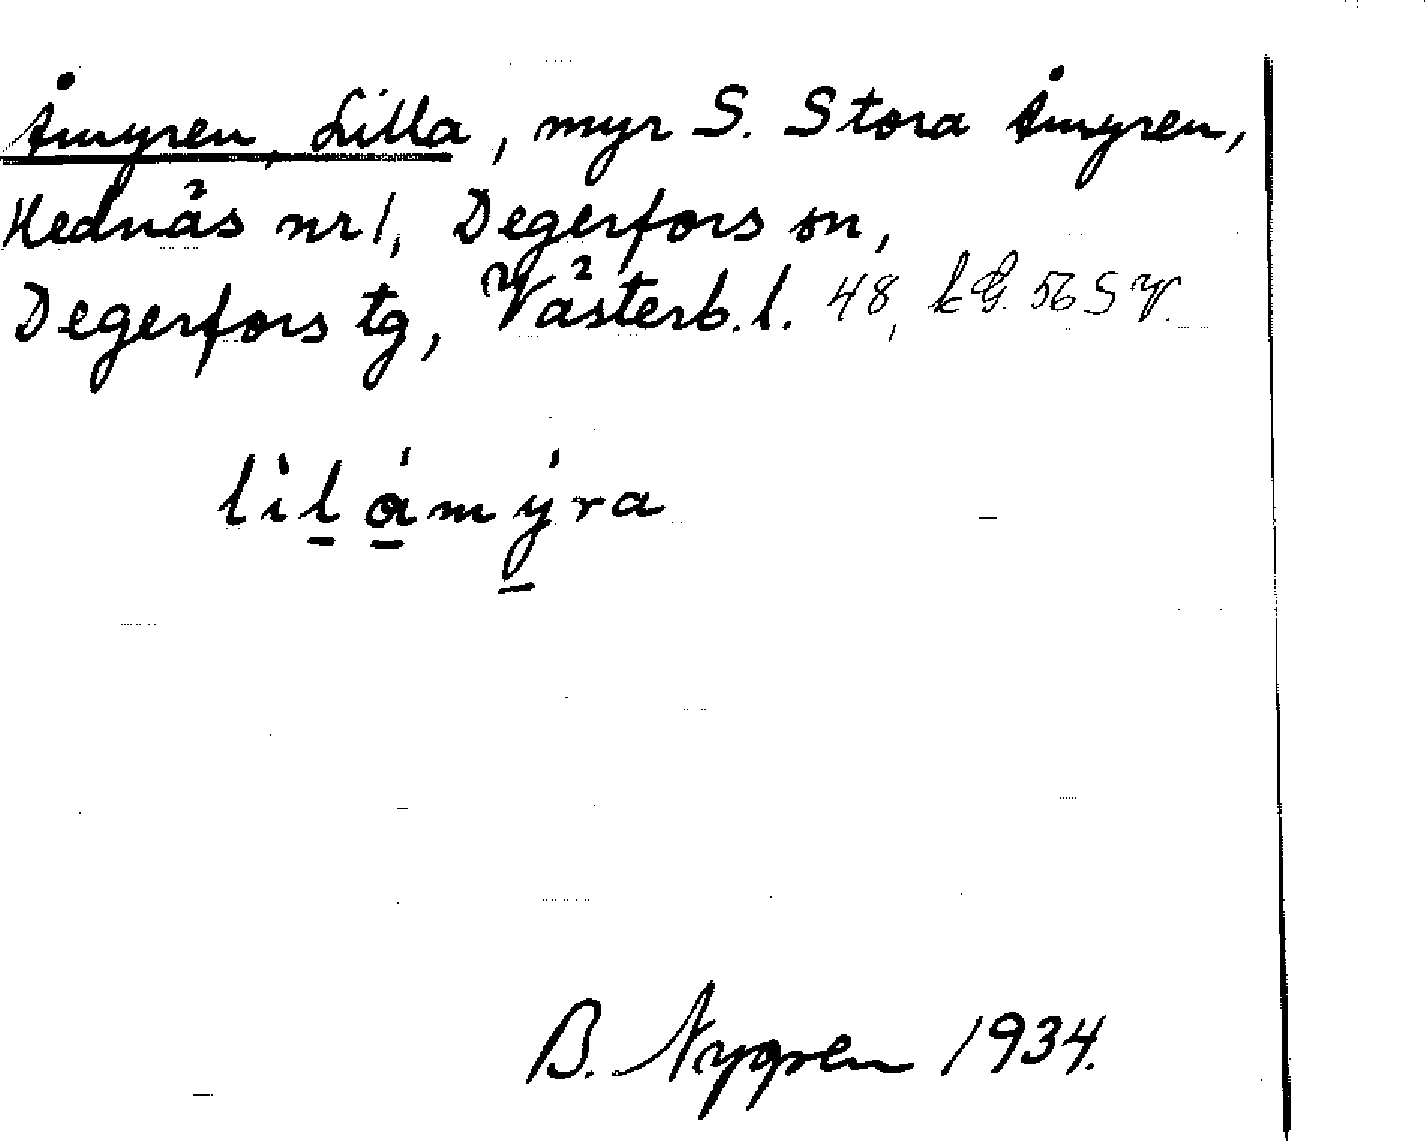 Åmyren, Lilla, myr S. Stora Åmyren,
Hednäs nr 1, Degerfors sn,
Degerfors tg, Västerb. l. 48, kG. 56 S V.
lìl ám ýra
B. Nygren 1934.